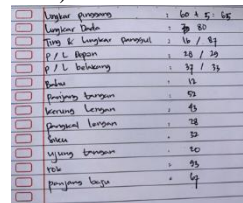 Lingkar pinggang : 60 + 5 : 65
Lingkar Dada : 80
Ting & Lingkar panggul : 16 / 87
P / L Depan : 28 / 29
P / L belakang : 37 / 33
Bahu : 12
Panjang tangan : 52
Kerung Lengan : 43
Pangkal lengan : 28
Siku : 32
ujung tangan : 20
rok : 93
panjang baju : 67